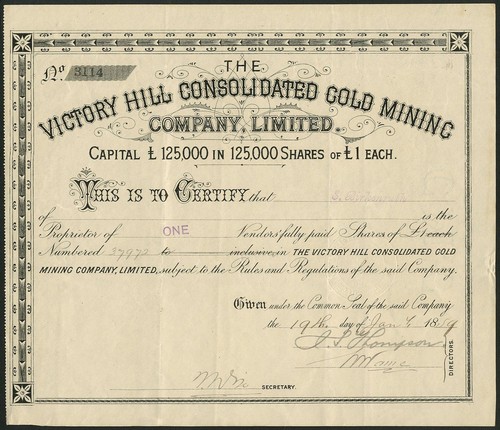 No 3114
THE
VICTORY HILL CONSOLIDATED GOLD MINING
COMPANY, LIMITED.
CAPITAL £ 125,000 IN 125,000 SHARES OF £1 EACH.
THIS IS TO CERTIFY that
of is the
Proprietor of ONE Vendors' fully paid Shares of £1 each
Numbered 37972 to inclusive in THE VICTORY HILL CONSOLIDATED GOLD
MINING COMPANY, LIMITED, subject to the Rules and Regulations of the said Company.
Given under the Common Seal of the said Company
the 19th day of Jany 1889
Thompson
DIRECTORS.
SECRETARY.